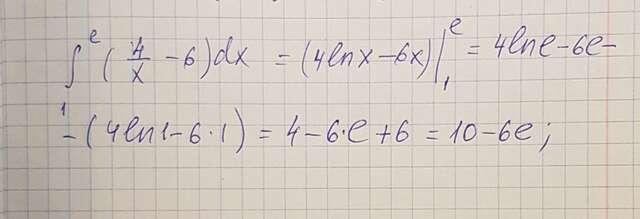 ∫₁ᵉ (4/x − 6)dx = (4lnx − 6x)|₁ᵉ = 4lne − 6e −
− (4ln1 − 6·1) = 4 − 6·e + 6 = 10 − 6e;